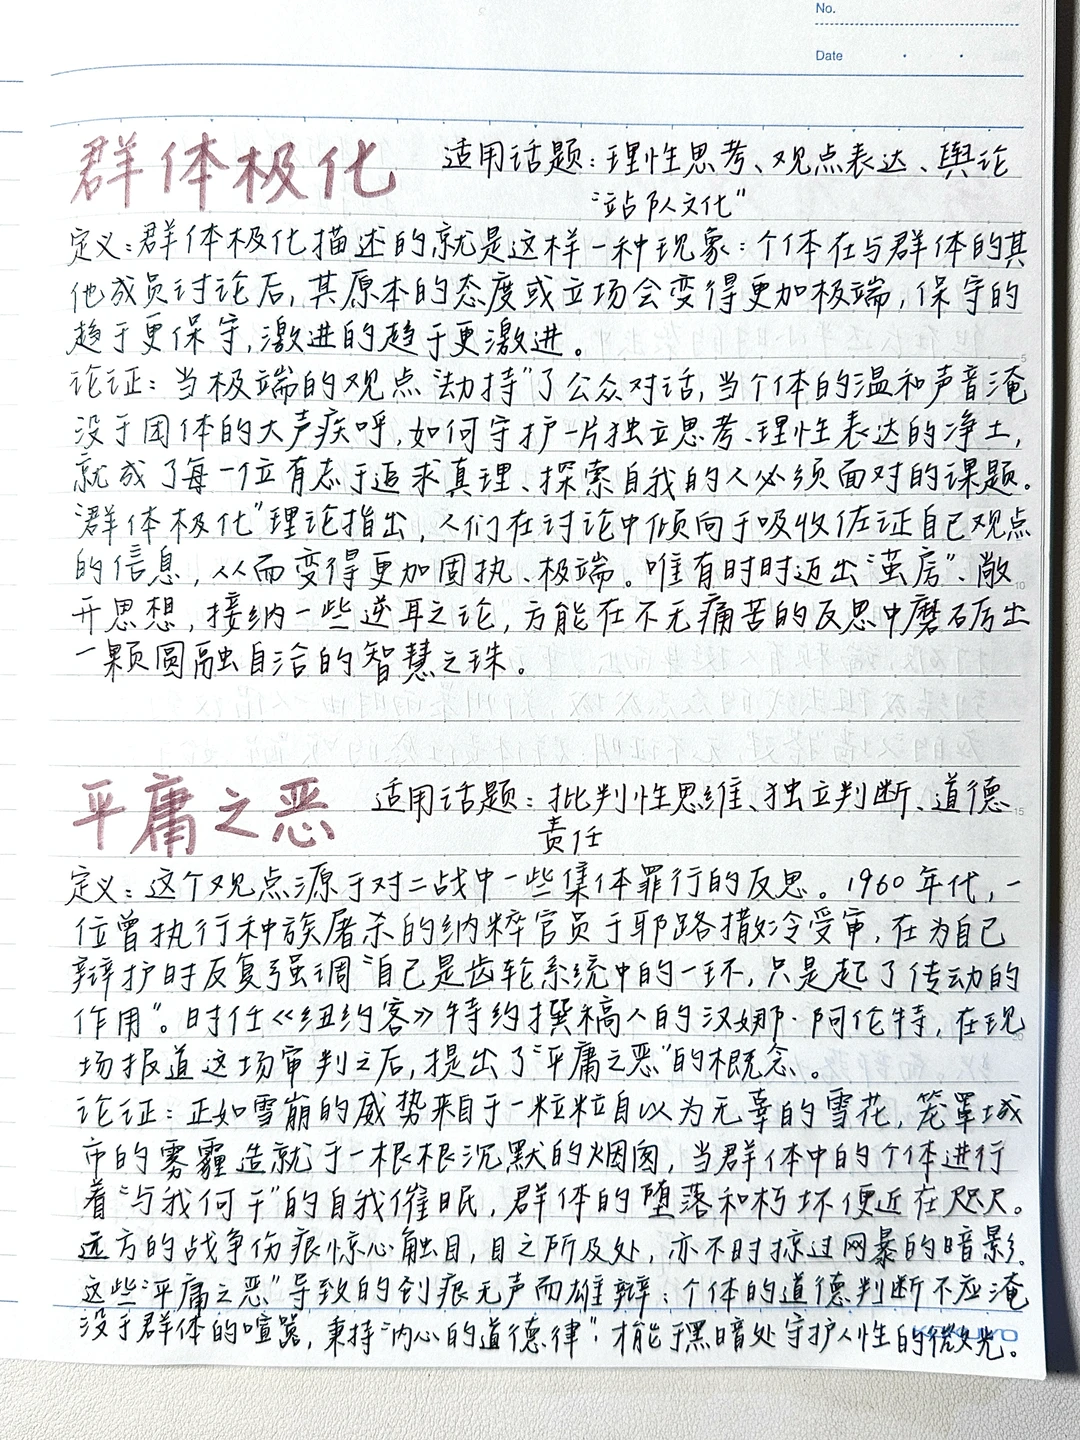 No.
Date
群体极化 适用话题：理性思考、观点表达、舆论
“站队文化”
定义：群体极化描述的就是这样一种现象：个体在与群体的其
他成员讨论后，其原本的态度或立场会变得更加极端，保守的
趋于更保守，激进的趋于更激进。
论证：当极端的观点“劫持”了公众对话，当个体的温和声音淹
没于团体的大声疾呼，如何守护一片独立思考、理性表达的净土，
就成了每一位有志于追求真理、探索自我的人必须面对的课题。
“群体极化”理论指出，人们在讨论中倾向于吸收佐证自己观点
的信息，从而变得更加固执、极端。唯有时时迈出“茧房”、敞
开思想，接纳一些逆耳之论，方能在不无痛苦的反思中磨砺出
一颗圆融自洽的智慧之珠。
平庸之恶 适用话题：批判性思维、独立判断、道德
责任
定义：这个观点源于对二战中一些集体罪行的反思。1960年代，一
位曾执行种族屠杀的纳粹官员于耶路撒冷受审，在为自己
辩护时反复强调“自己是齿轮系统中的一环，只是起了传动的
作用”。时任《纽约客》特约撰稿人的汉娜·阿伦特，在现
场报道这场审判之后，提出了“平庸之恶”的概念。
论证：正如雪崩的威势来自于一粒粒自以为无辜的雪花，笼罩城
市的雾霾造就于一根根沉默的烟囱，当群体中的个体进行
着“与我何干”的自我催眠，群体的堕落和朽坏便近在咫尺。
远方的战争伤痕惊心触目，目之所及处，亦不时掠过网暴的暗影。
这些“平庸之恶”导致的创痕无声而雄辩：个体的道德判断不应淹
没于群体的喧嚣，秉持“内心的道德律”，才能于黑暗处守护人性的微光。
KOKUYO
5
10
15
20